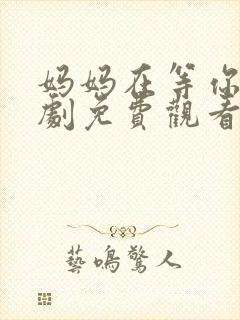 妈妈在等你
劇免費觀看
藝鳴驚人